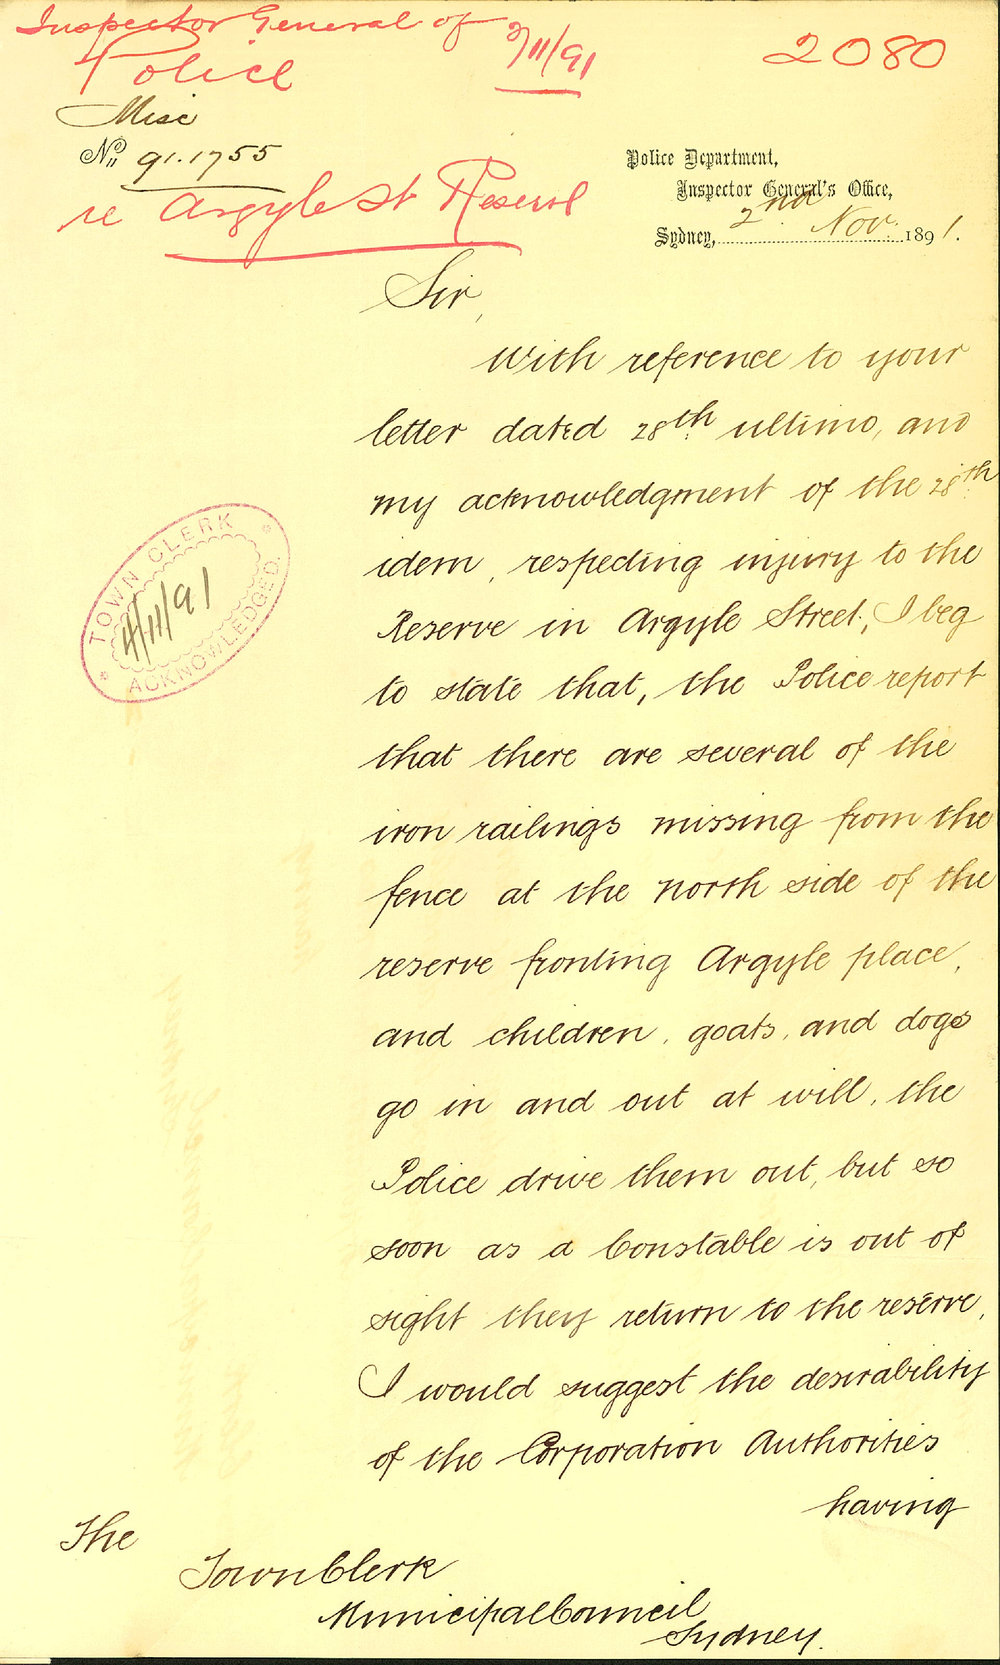 Inspector General of
Police
2/11/91
2080
Misc
No. 91.1755
re Argyle St Reserve
Police Department,
Inspector General's Office,
Sydney, 2nd Nov. 1891.
Sir,
With reference to your
letter dated 28th ultimo, and
my acknowledgment of the 28th
idem, respecting injury to the
Reserve in Argyle Street, I beg
to state that, the Police report
that there are several of the
iron railings missing from the
fence at the north side of the
reserve fronting Argyle place,
and children, goats, and dogs
go in and out at will, the
Police drive them out, but so
soon as a Constable is out of
sight they return to the reserve,
I would suggest the desirability
of the Corporation Authorities
having
TOWN CLERK
4/11/91
ACKNOWLEDGED.
The
Town Clerk
Municipal Council
Sydney.